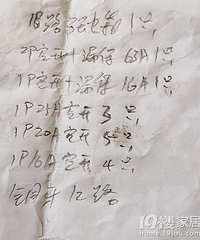 18路强电箱1只
2P空开+漏保63A1只
1P空开+漏保16A1只
1P25A空开3只
1P20A空开5只
1P16A空开4只
12路
19楼家居
home.19lou.com